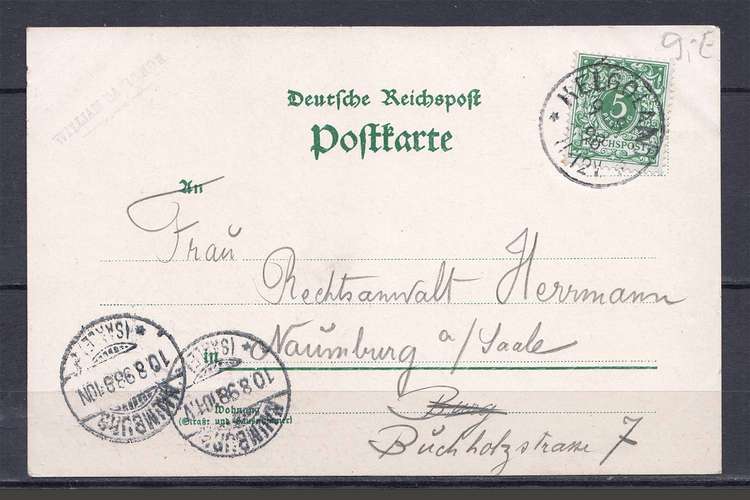 9,-E
Deutsche Reichspost
Postkarte
HELGOLAND
9
8
98
11-12V
5
REICHSPOST
An
Frau
Rechtsanwalt Herrmann
in Naumburg a/Saale
Burg
Wohnung
(Straße und Hausnummer)
Buchholzstrasse 7
NAUMBURG
(SAALE)
10.8.98.8-10N
NAUMBURG
(SAALE)
10.8.98.10-11V